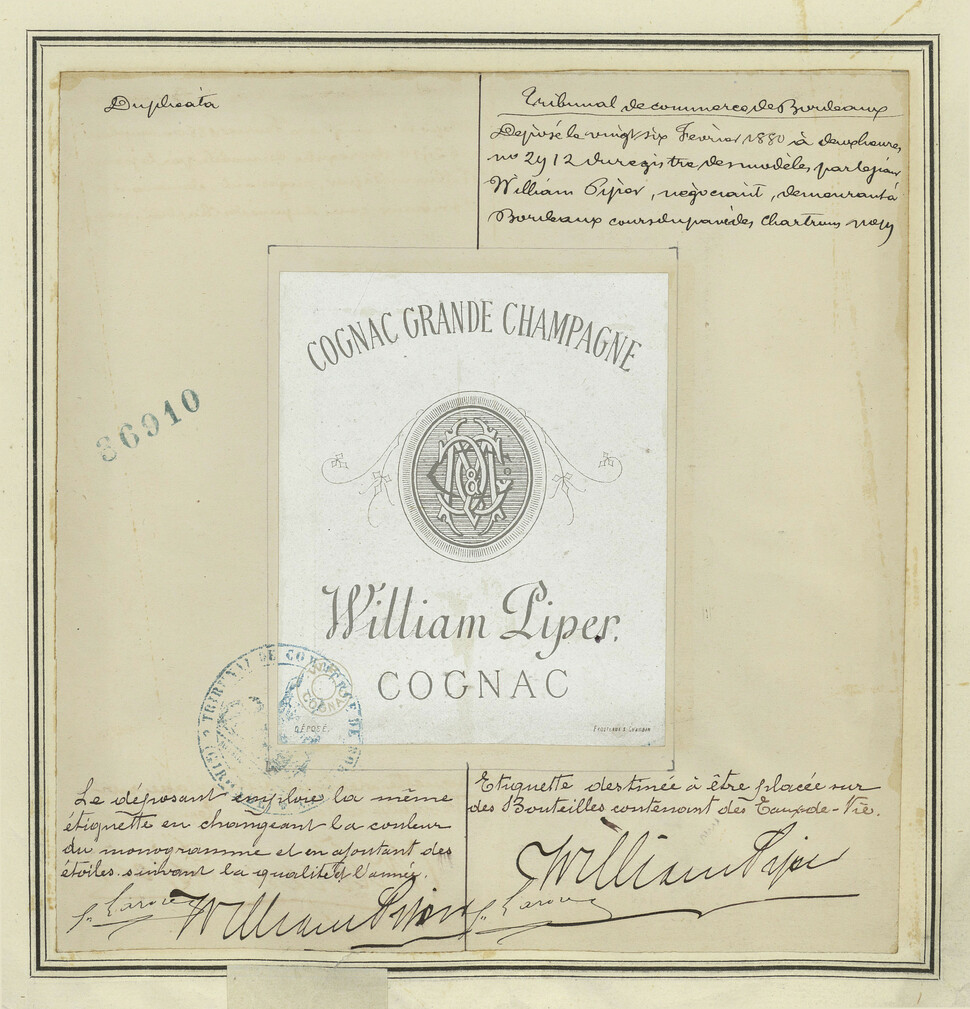 Duplicata
Tribunal de commerce de Bordeaux
Déposé le vingt six Février 1880 à deux heures
no 2912 du registre des modèles par le sieur
William Piper, négociant, demeurant à
Bordeaux cours du pavé des Chartrons
36910
COGNAC GRANDE CHAMPAGNE
William Piper.
COGNAC
TRIBUNAL DE COMMERCE DE
COGNAC
DÉPOSÉ
Le déposant emploie la même
étiquette en changeant la couleur
du monogramme et en ajoutant des
étoiles suivant la qualité et l'année.
William Piper
Etiquette destinée à être placée sur
des Bouteilles contenant des Eaux-de-Vie.
William Piper